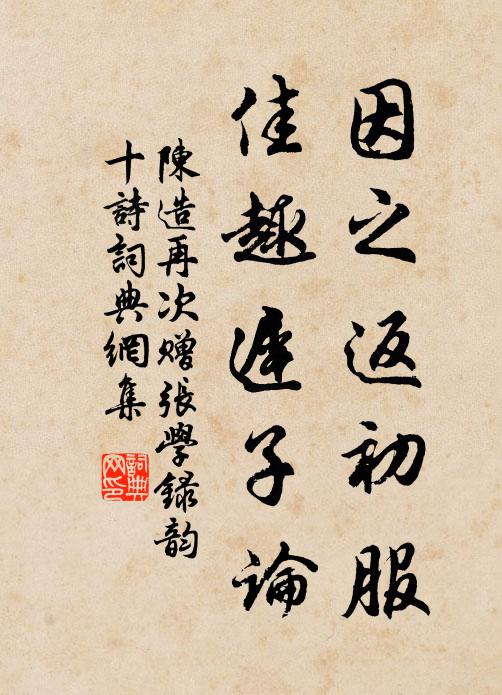 因之返初服
佳趣遲子論
陳造再次贈張學錄韵
十詩詞典網集
詞典网印